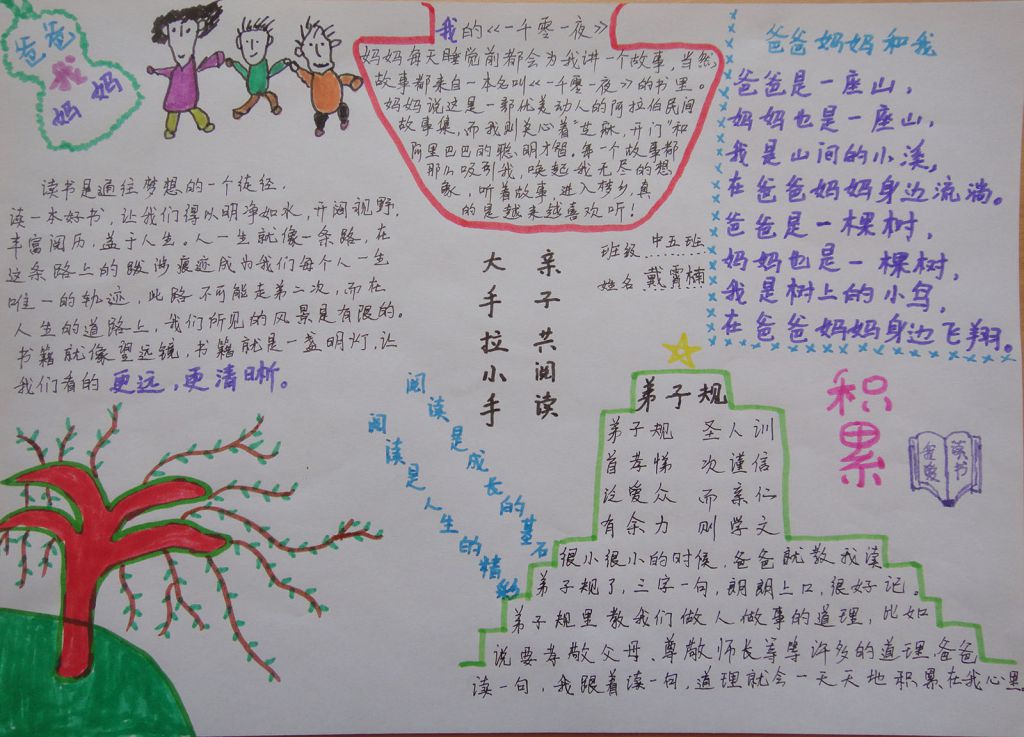 爸爸
我
妈妈
我的《一千零一夜》
妈妈每天睡觉前都会为我讲一个故事,当然,
故事都来自一本名叫《一千零一夜》的书里。
妈妈说这是一部优美动人的阿拉伯民间
故事集,而我则关心着“芝麻,开门”和
阿里巴巴的聪明才智。每一个故事都
那么吸引我,唤起我无尽的想
象,听着故事,进入梦乡,真
的是越来越喜欢听!
爸爸妈妈和我
爸爸是一座山,
妈妈也是一座山,
我是山间的小溪,
在爸爸妈妈身边流淌。
爸爸是一棵树,
妈妈也是一棵树,
我是树上的小鸟,
在爸爸妈妈身边飞翔。
读书是通往梦想的一个徒径,
读一本好书,让我们得以明净如水,开阔视野,
丰富阅历,益于人生。人一生就像一条路,在
这条路上的跋涉痕迹成为我们每个人一生
唯一的轨迹,此路不可能走第二次,而在
人生的道路上,我们所见的风景是有限的。
书籍就像望远镜,书籍就是一盏明灯,让
我们看的更远,更清晰。
亲子共阅读
大手拉小手
班级 中五班
姓名 戴霄楠
阅读是成长的基石
阅读是人生的精彩
弟子规
弟子规 圣人训
首孝悌 次谨信
泛爱众 而亲仁
有余力 则学文
很小很小的时候,爸爸就教我读
弟子规了,三字一句,朗朗上口,很好记。
弟子规里教我们做人做事的道理,比如
说要孝敬父母、尊敬师长等等许多的道理,爸爸
读一句,我跟着读一句,道理就会一天天地积累在我心里
积累
我爱读书